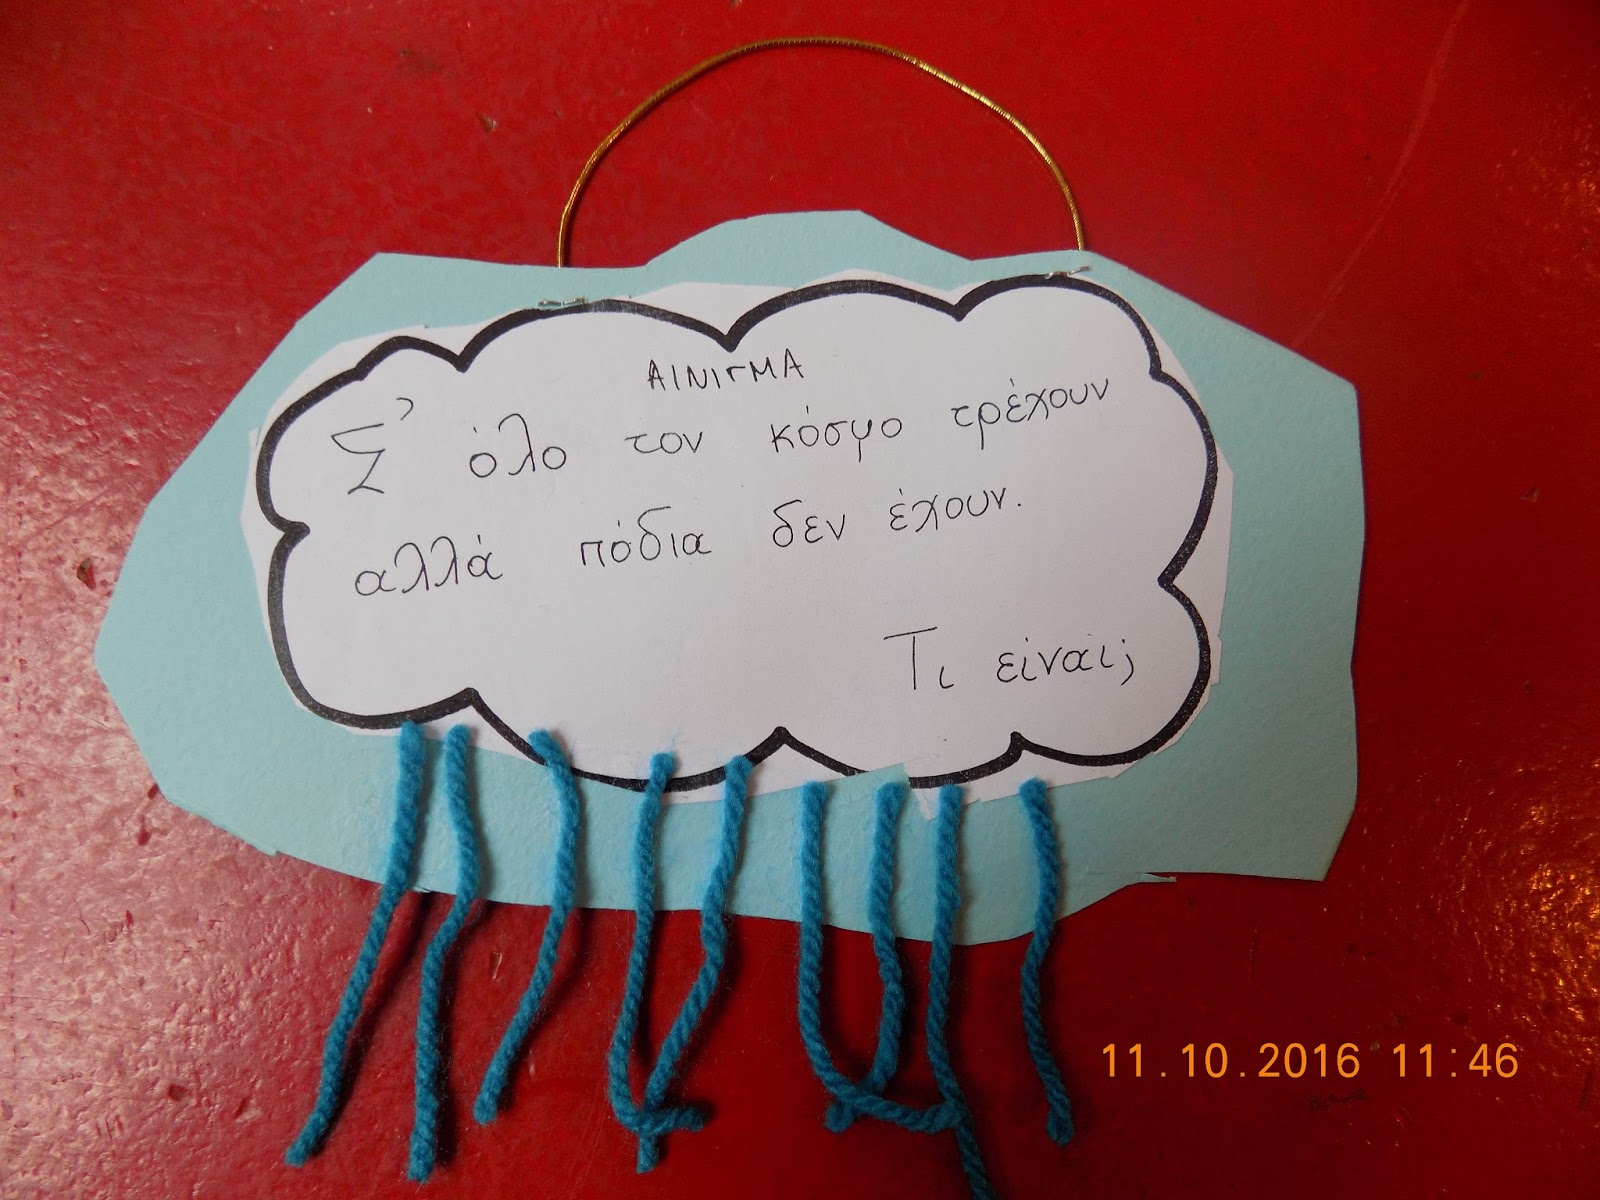 ΑΙΝΙΓΜΑ
Σ' όλο τον κόσμο τρέχουν
αλλά πόδια δεν έχουν.
Τι είναι;
11.10.2016 11:46